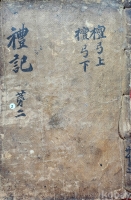 檀弓上
檀弓下
禮記